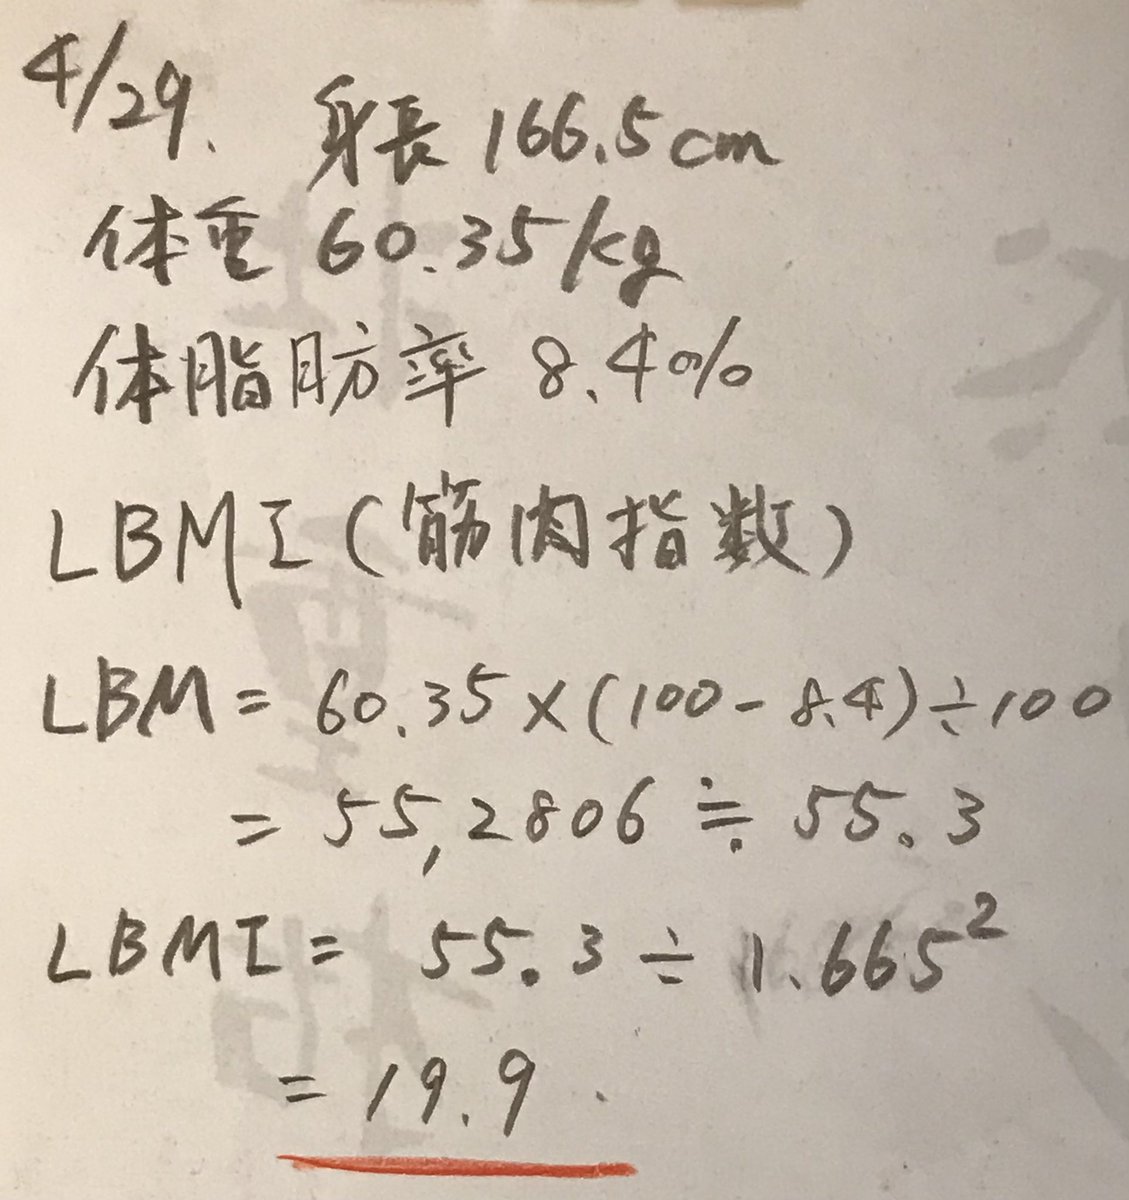 4/29. 身長 166.5cm
体重 60.35kg
体脂肪率 8.4%
LBMI(筋肉指数)
LBM = 60.35×(100-8.4)÷100
= 55,2806 ≒ 55.3
LBMI = 55.3 ÷ 1.665²
= 19.9